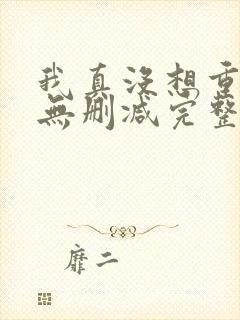 我真沒想重
無刪減完整
靡二